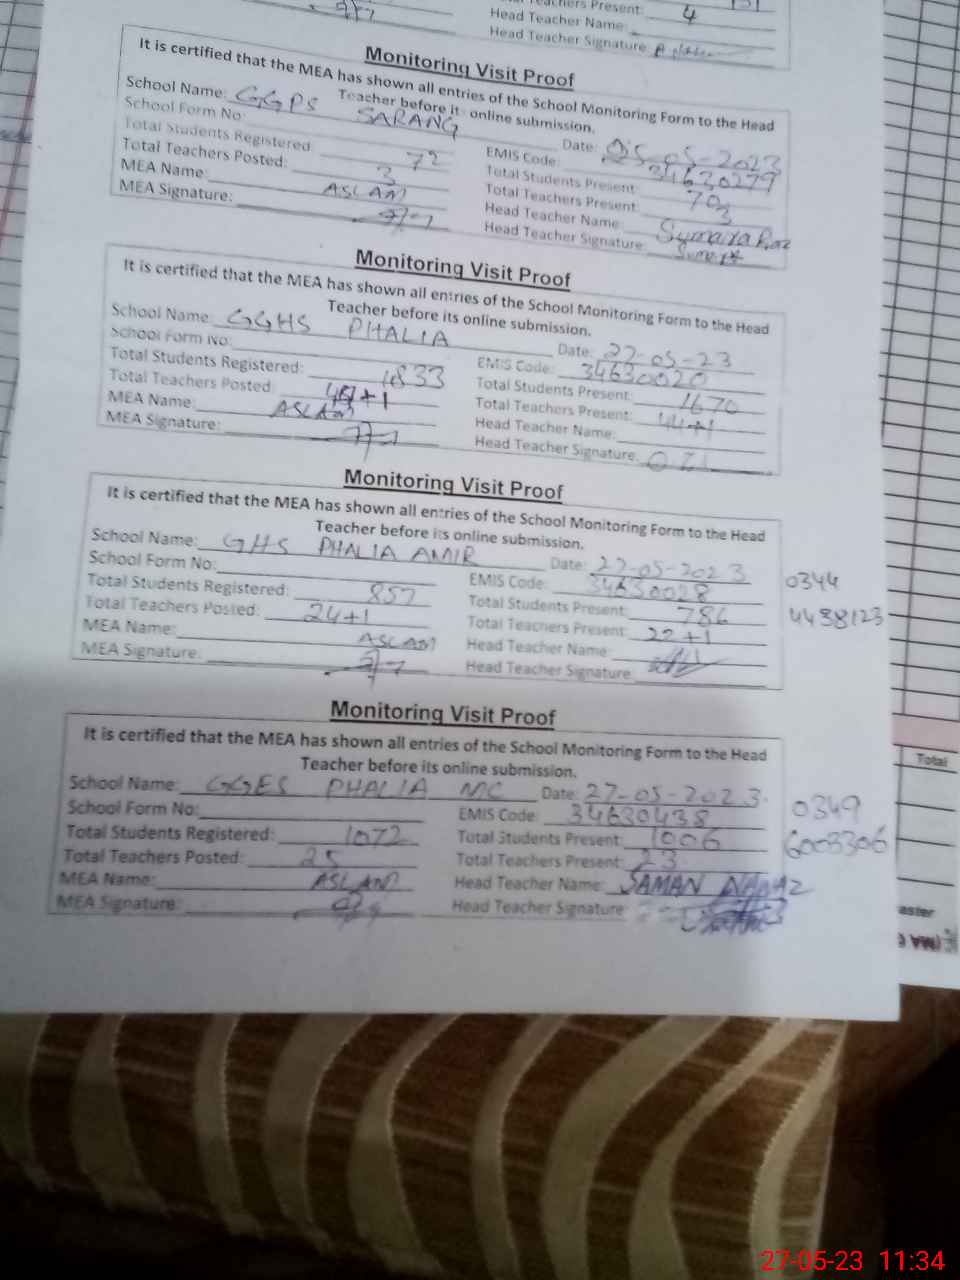 Total Teachers Present: 4
Head Teacher Name:
Head Teacher Signature:
Monitoring Visit Proof
It is certified that the MEA has shown all entries of the School Monitoring Form to the Head
Teacher before its online submission.
School Name: GGPS SARANG Date: 05-2023
School Form No: EMIS Code: 34630279
Total Students Registered: 72 Total Students Present: 70
Total Teachers Posted: 3 Total Teachers Present: 3
MEA Name: ASLAM Head Teacher Name: Sumaira
MEA Signature: Head Teacher Signature:
Monitoring Visit Proof
It is certified that the MEA has shown all entries of the School Monitoring Form to the Head
Teacher before its online submission.
School Name: GGHS PHALIA Date: 27-05-23
School Form No: EMIS Code: 34630020
Total Students Registered: 1833 Total Students Present: 1670
Total Teachers Posted: +1 Total Teachers Present: 44+1
MEA Name: ASLAM Head Teacher Name:
MEA Signature: Head Teacher Signature:
Monitoring Visit Proof
It is certified that the MEA has shown all entries of the School Monitoring Form to the Head
Teacher before its online submission.
School Name: GHS PHALIA AMIR Date: 27-05-2023
School Form No: EMIS Code: 34630028 0344
Total Students Registered: 857 Total Students Present: 786 4438123
Total Teachers Posted: 24+1 Total Teachers Present: 22+1
MEA Name: ASLAM Head Teacher Name:
MEA Signature: Head Teacher Signature:
Monitoring Visit Proof
It is certified that the MEA has shown all entries of the School Monitoring Form to the Head
Teacher before its online submission.
School Name: GGES PHALIA MC Date: 27-05-2023
School Form No: EMIS Code: 34630438 0349
Total Students Registered: 1072 Total Students Present: 1006 6003306
Total Teachers Posted: 25 Total Teachers Present: 23
MEA Name: ASLAM Head Teacher Name: SAMAN NAWAZ
MEA Signature: Head Teacher Signature:
Total
27-05-23 11:34